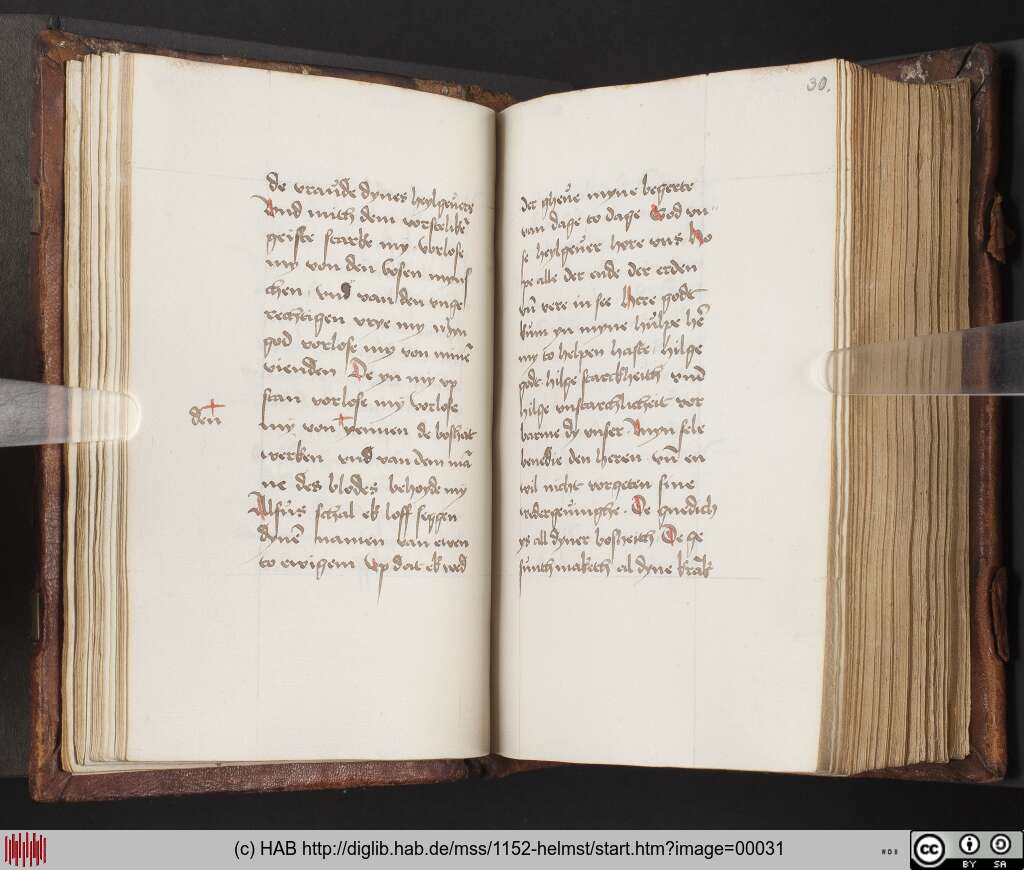 de vraude dynes heylgeuers
Und mith dem vorstelikē
geiste starke my · vorlose
my von den bosen myns
chen · vnd van den vnge
rechtigen vrye my myn
god vorlose my von minē
vienden De yn my vp
stan vorlose my vorlose
den
my von yennen de bosheit
werken vnd van dem mā
ne des blodes behoyde my
Alsus schal ek loff seggen
dynē namen van ewen
to ewigem vp dat ek wed
30.
der gheue myne begerte
van dage to dage God vn
se heylgeuer hore vns Ho
pe alle der ende der erden
vn̄ vere in see Here godt
kum yn myne hulpe hē
my to helpen haste · hilge
godt hilge starckheith vnd
hilge vnstarchlicheit vor
barme dy vnser · Myn sele
benedie den heren · vn̄ en
wil nicht vorgeten sine
wedergeuinghe · De gnedich
ys all dyner bosheith De ge
sunth maketh al dyne krāk
(c) HAB http://diglib.hab.de/mss/1152-helmst/start.htm?image=00031
WDB
cc
BY SA